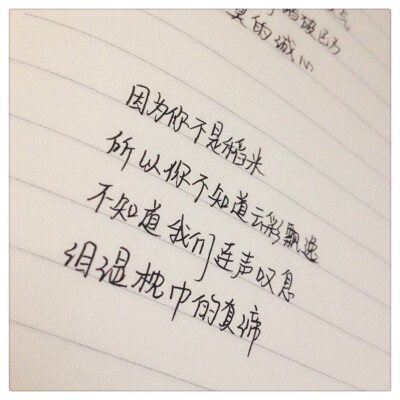 的诚心
因为你不是稻米
所以你不知道云彩飘逸
不知道我们连声叹息
泪湿枕巾的真缔